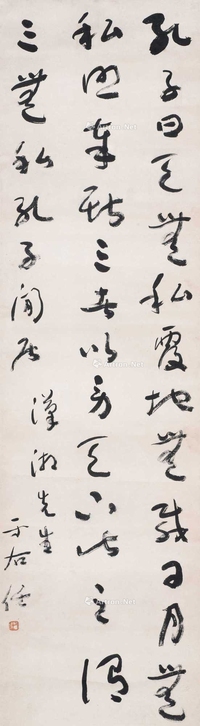 孔子曰天無私覆地無載日月無
私照奉斯三者以勞天下此之謂
三無私孔子閒居
漢湘先生
于右任